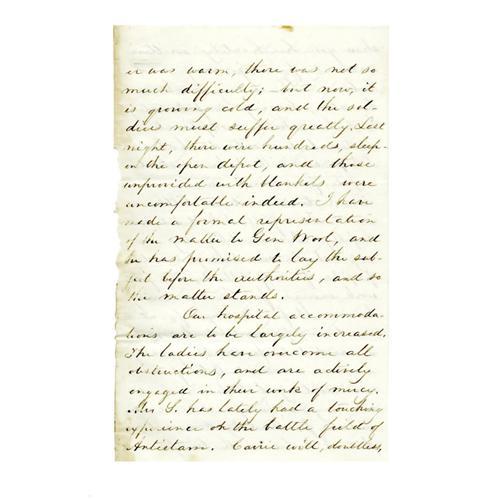 er was warm, there was not so
much difficulty; but now, it
is growing cold, and the sol-
diers must suffer greatly. Last
night, there were hundreds, sleep-
on the open depot, and those
unprovided with blankets were
uncomfortable indeed. I have
made a formal representation
of the matter to Gen Wool, and
he has promised to lay the sub-
ject before the authorities, and so
the matter stands.
Our hospital accommoda-
tions are to be largely increased.
The ladies have overcome all
obstructions, and are actively
engaged in their work of mercy.
Mrs S. has lately had a touching
experience on the battle field of
Antietam. Carrie will, doubtless,